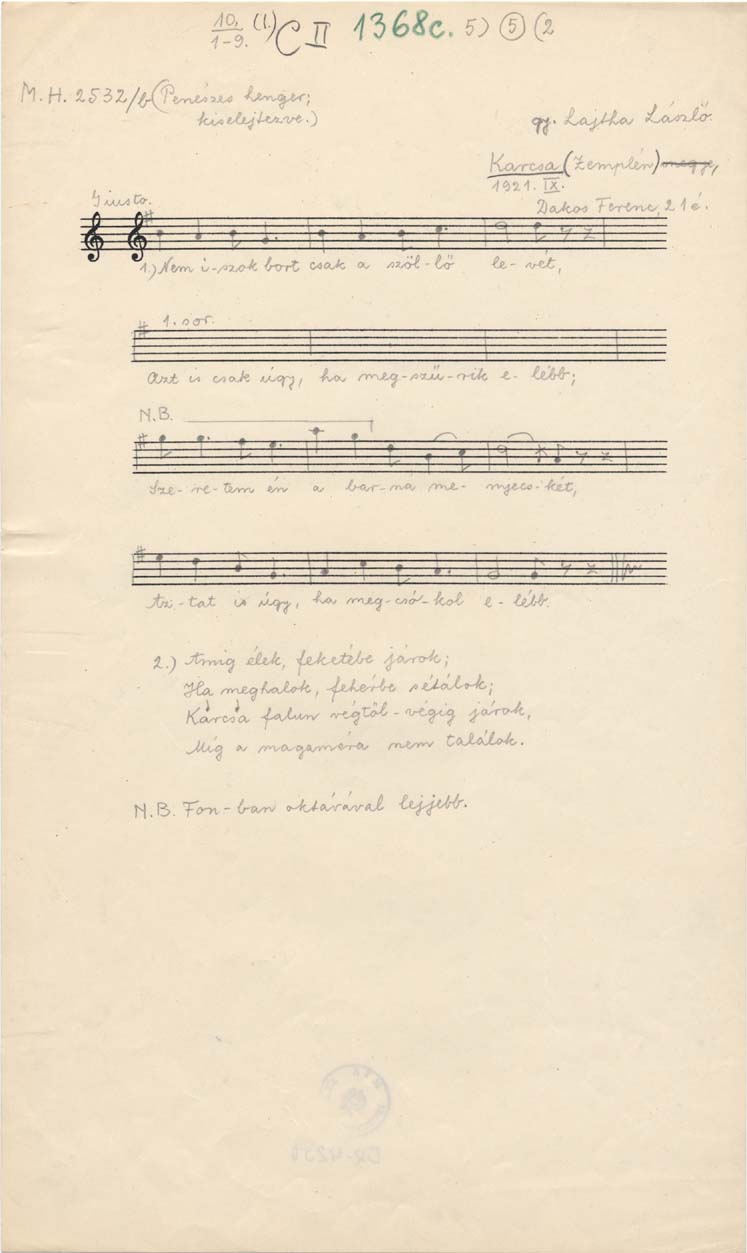 10. (1.) C II 1368c. 5) 5 (2
1-9.
M.H. 2532/b (Penészes henger;
kiselejtezve.)
gy. Lajtha László.
Karcsa (Zemplén) megye,
1921. IX.
Dakos Ferenc, 21 é.
Giusto.
1.) Nem i-szok bort csak a szöl-lő le-vét,
1. sor.
Azt is csak úgy, ha meg-szü-rik e-lébb;
N.B.
Sze-re-tem én a bar-na me-nyecs-két,
Az-tat is úgy, ha meg-csó-kol e-lébb.
2.) Amig élek, feketébe járok;
Ha meghalok, fehérbe sétálok;
Karcsa falun végtől-végig járok,
Míg a magaméra nem találok.
N.B. Fon-ban oktávával lejjebb.